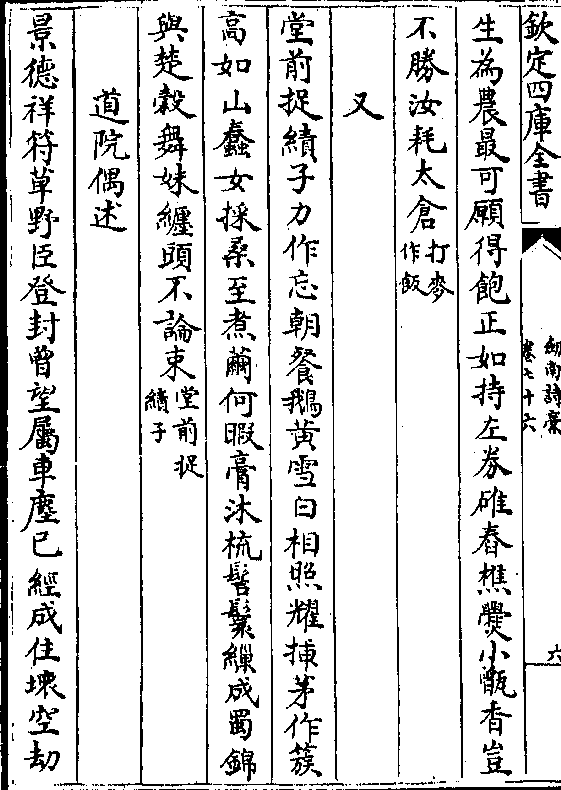 欽定四庫全書
劒南詩藁
卷七十六
六
生為農最可願得飽正如持左券碓舂樵㸑小甑香豈
不勝汝耗太倉打麥
作飯
又
堂前捉績子力作忘朝餐鵝黄雪白相照耀揀茅作簇
高如山蠶女採桑至煮繭何暇膏沐梳髻鬟繅成蜀錦
與楚縠舞姝纏頭不論束堂前捉
績子
道院偶述
景德祥符草野臣登封曾望屬車塵已經成住壊空劫